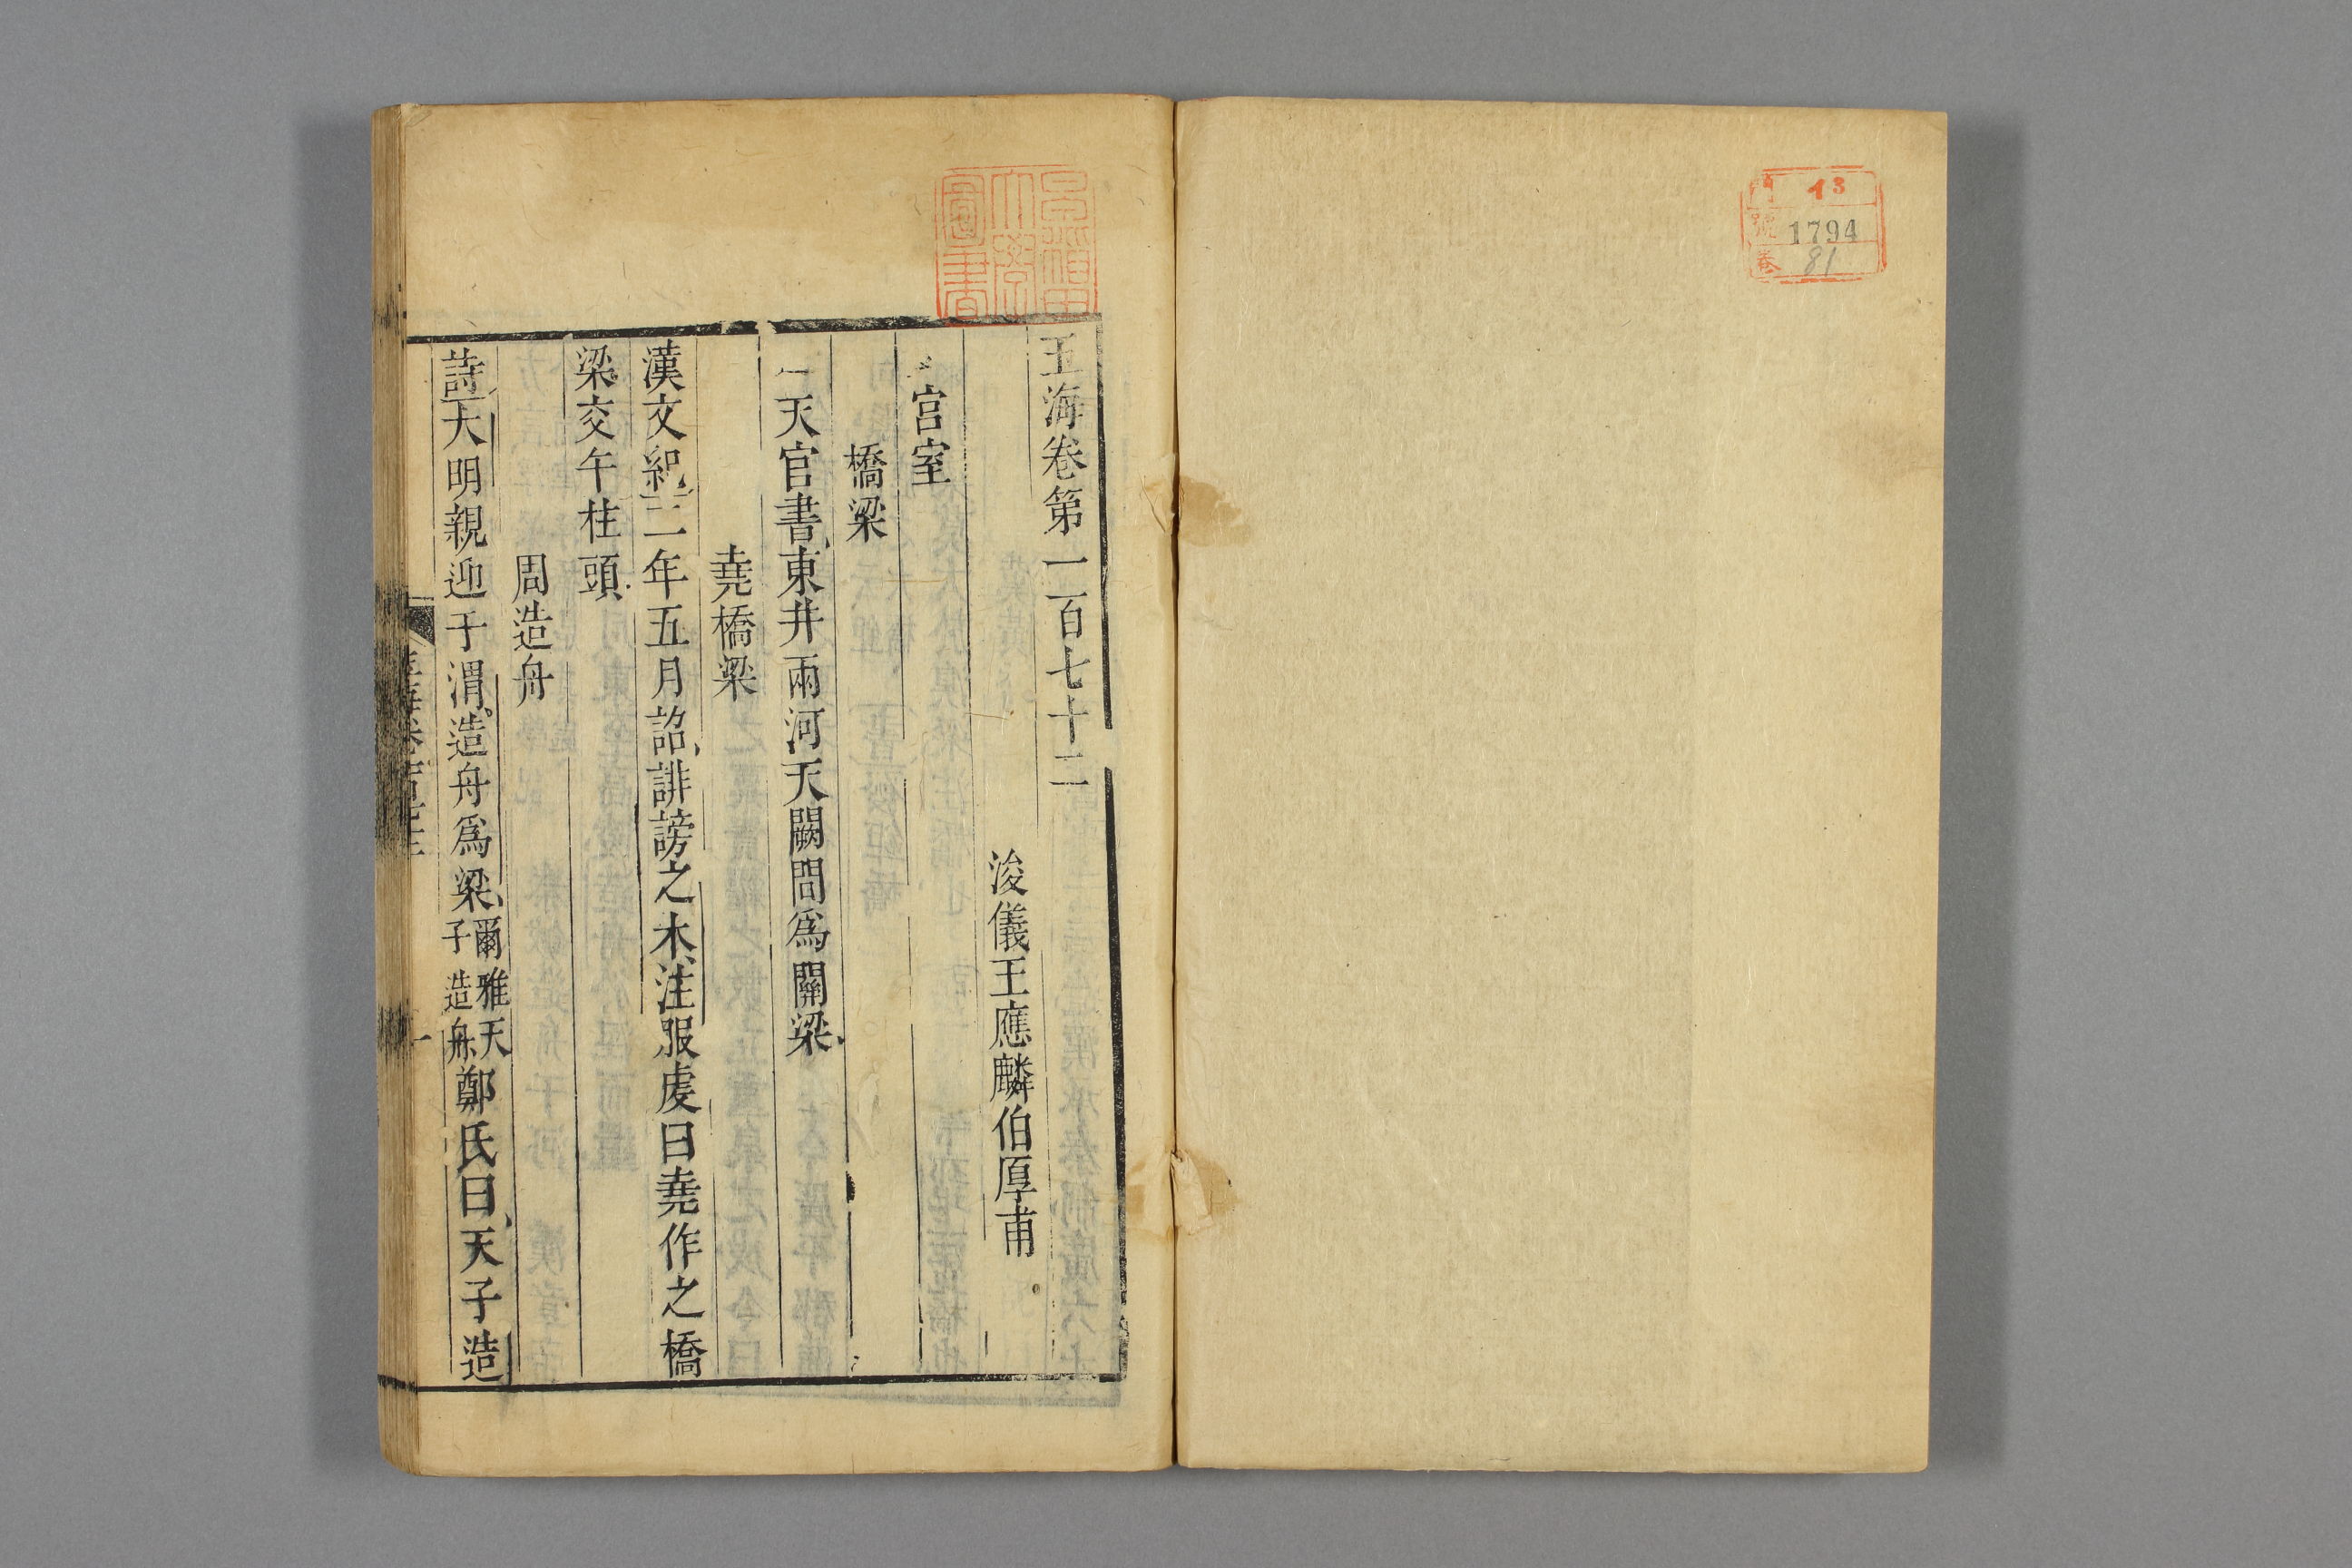 門 13
號 1794
卷 81
玉海卷第一百七十二
浚儀王應麟伯厚甫
宮室
橋梁
天官書東井兩河天闕間為關梁
堯橋梁
漢文紀二年五月詔誹謗之木注服虔曰堯作之橋
梁交午柱頭
周造舟
詩大明親迎于渭造舟爲梁爾雅天子造舟鄭氏曰天子造
玉海卷百七十二
一